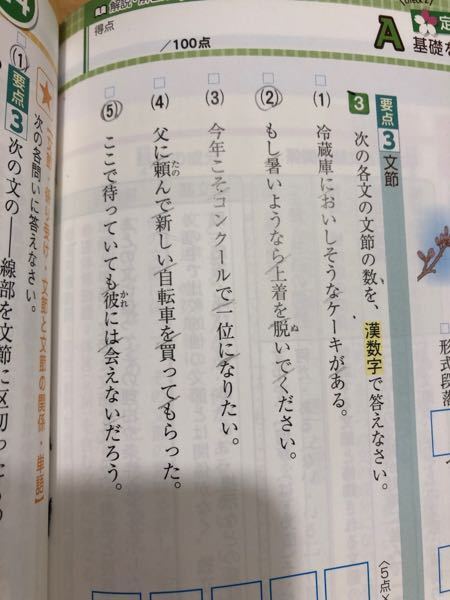 得点
/100点
A
基礎を
要点3 文節
3 次の各文の文節の数を、漢数字で答えなさい。
(1) 冷蔵庫においしそうなケーキがある。
(2) もし暑いようなら上着を脱いでください。
(3) 今年こそコンクールで一位になりたい。
(4) 父に頼んで新しい自転車を買ってもらった。
(5) ここで待っていても彼には会えないだろう。
形式段落
〈5点×
次の各問いに答えなさい。
(1) 要点3 次の文の――線部を文節に区切ったもの